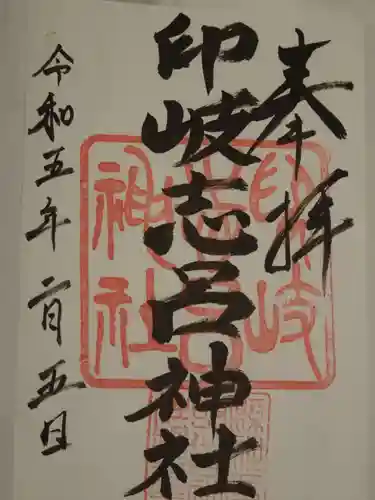 奉拝
印岐志呂神社
令和五年二月五日
印岐志呂神社